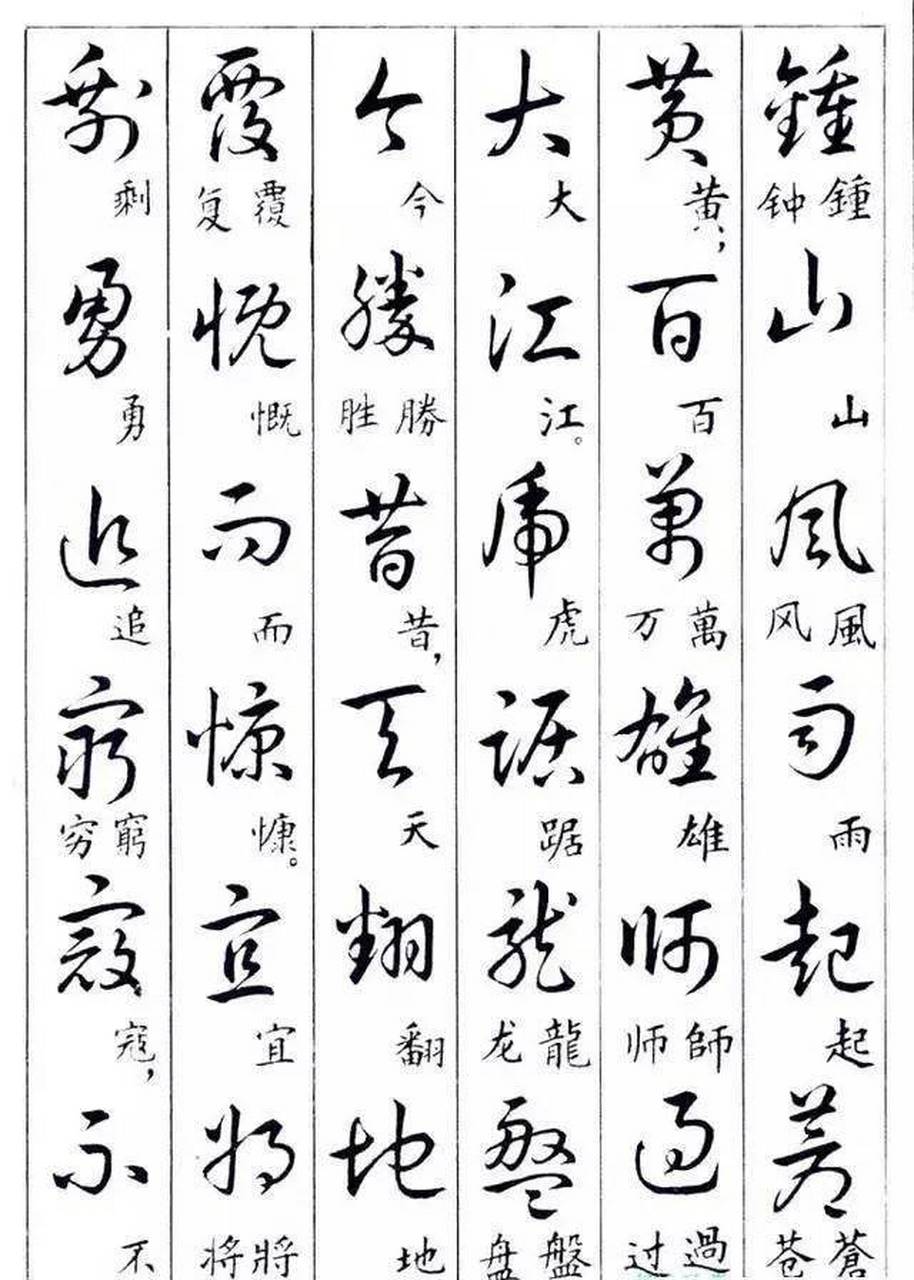 鍾 鍾 钟 山 山 風 風 风 雨 雨 起 起 蒼 蒼 苍
黄 黄; 百 百 萬 萬 万 雄 雄 師 師 师 過 過 过
大 大 江 江。 虎 虎 踞 踞 龍 龍 龙 盤 盤 盘
今 今 勝 勝 胜 昔 昔, 天 天 翻 翻 地 地
覆 覆 复 慨 慨 而 而 慷 慷。 宜 宜 將 將 将
剩 剩 勇 勇 追 追 窮 窮 穷 寇 寇, 不 不